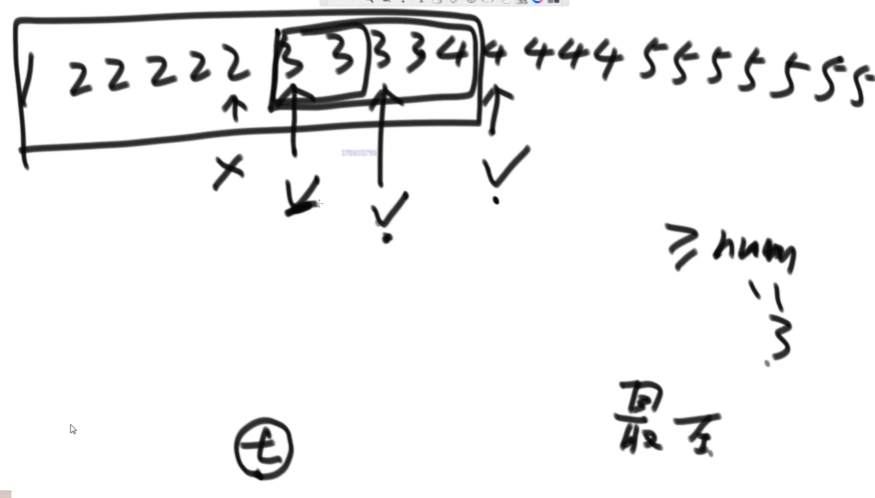 1 2 2 2 2 2 3 3 3 3 4 4 4 4 4 5 5 5 5 5 5 5
≥ num
3
最左
t